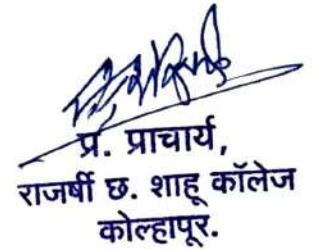 प्र. प्राचार्य,
राजर्षी छ. शाहू कॉलेज
कोल्हापूर.